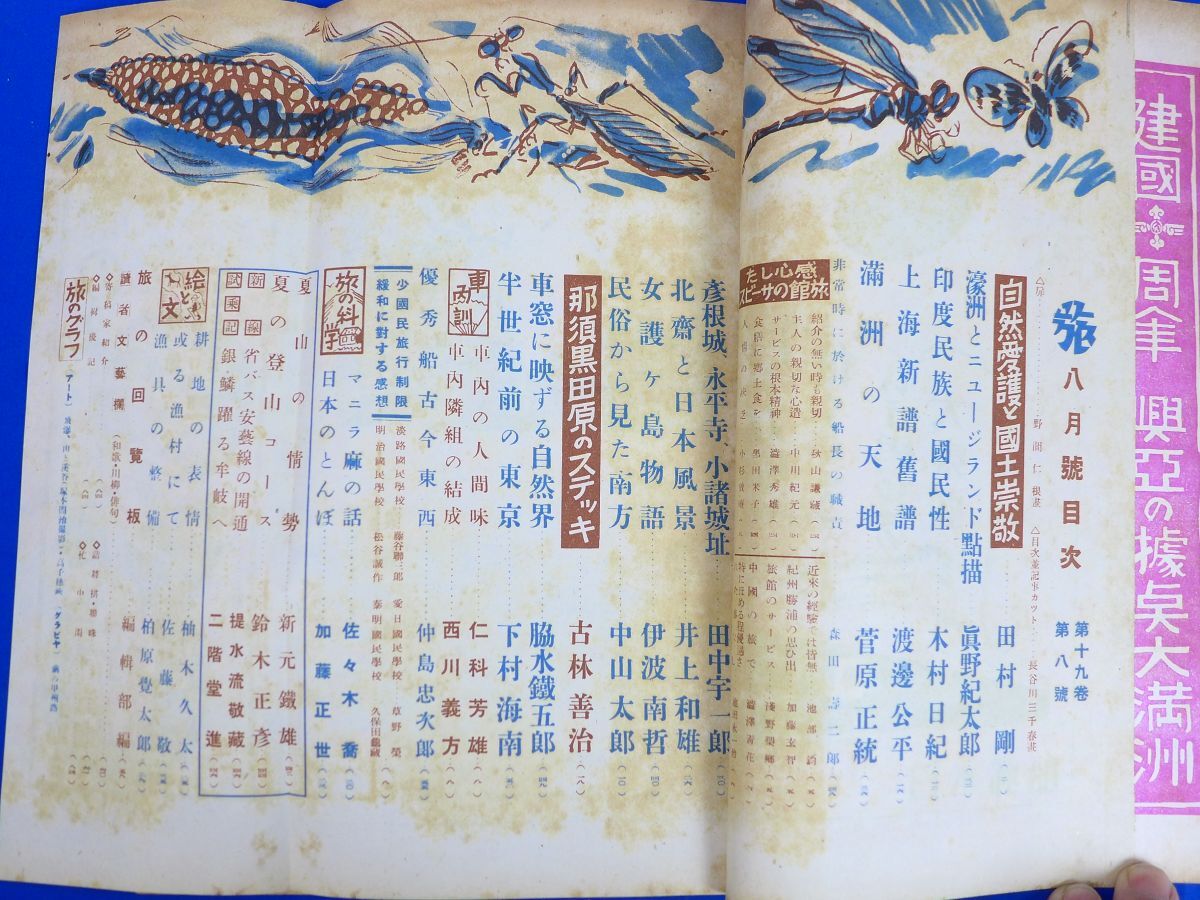 建國十周年 興亞の據点大満洲
旅 八月號目次 第十九卷 第八號
野間仁根畫 △目次並記事カット 長谷川三千春畫
自然愛護と國土崇敬 田村剛
濠洲とニュージランド點描 眞野紀太郎
印度民族と國民性 木村日紀
上海新譜舊譜 渡邊公平
滿洲の天地 菅原正統
非常時に於ける船長の職責 森田壽二郎
旅館のサービスに感心した
紹介の無い時も親切 秋山謙蔵
主人の親切な心遣 中川紀元
サービスの根本精神 澁澤秀雄
食膳に郷土食を 黒田米子
近來の經驗では皆無 池部鈞
紀州勝浦の思ひ出 加藤玄智
旅館のサービス
中國の旅で 澁澤青花
彦根城、永平寺、小諸城址 田中宇一郎
北齋と日本風景 井上和雄
女護ヶ島物語 伊波南哲
民俗から見た南方 中山太郎
那須黒田原のステッキ 古林善治
車窓に映ずる自然界 脇水鐵五郎
半世紀前の東京 下村海南
車内訓
車内の人間味 仁科芳雄
車内隣組の結成 西川義方
優秀船古今東西 仲島忠次郎
少國民旅行制限緩和に對する感想
淡路國民學校 藤谷聯三郎 愛日國民學校 草野榮
明治國民學校 松谷誠作 泰明國民學校 久保田龜藏
旅の科學
マニラ麻の話 佐々木喬
日本のとんぼ 加藤正世
夏山の情勢 新元鐵雄
夏の登山コース 鈴木正彦
新線 省バス安藝線の開通 提水流敬藏
試乘記 銀鱗躍る牟岐へ 二階堂進
絵と文
耕地の表情 柚木久太
或る漁村にて 佐藤敬
漁具の整備 柏原覺太郎
旅の回覽板 編輯部編
讀者文藝欄（和歌・川柳・俳句）
◇寄稿家紹介
◇編輯後記
旅のグラフ
アート グラビヤ